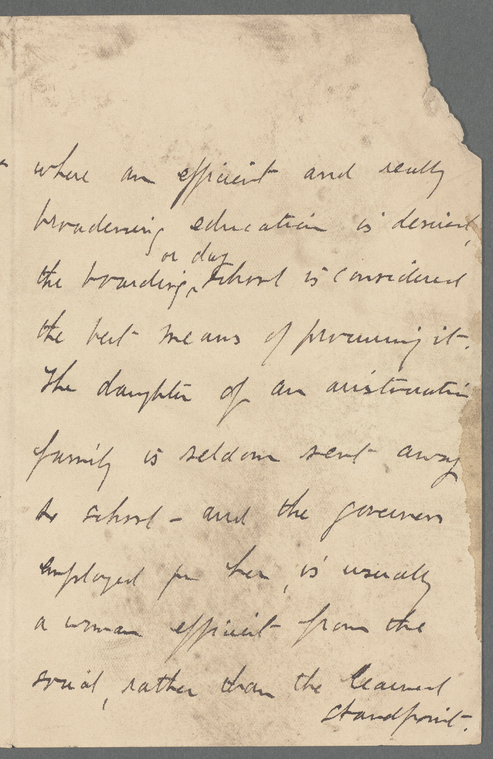 where an efficient and really
broadening education is desired,
or day
the boarding, school is considered
the best means of procuring it.
The daughter of an aristocratic
family is seldom sent away
to school – and the governess
employed for her, is usually
a woman efficient from the
social, rather than the learned
standpoint.